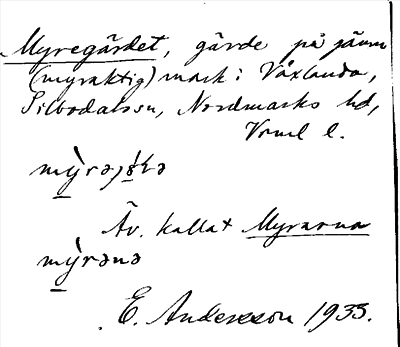 Myregärdet, gärde på jämn
(myraktig) mark i Våxlanda,
Silbodals sn, Nordmarks hd,
Vrml l.
Äv. kallat Myrarna
mỳrəna
E. Andersson 1933.